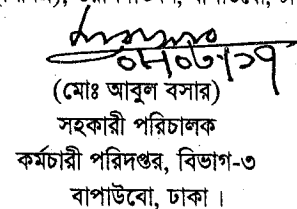 (মোঃ আবুল বসার)
সহকারী পরিচালক
কর্মচারী পরিদপ্তর, বিভাগ-৩
বাপাউবো, ঢাকা ।